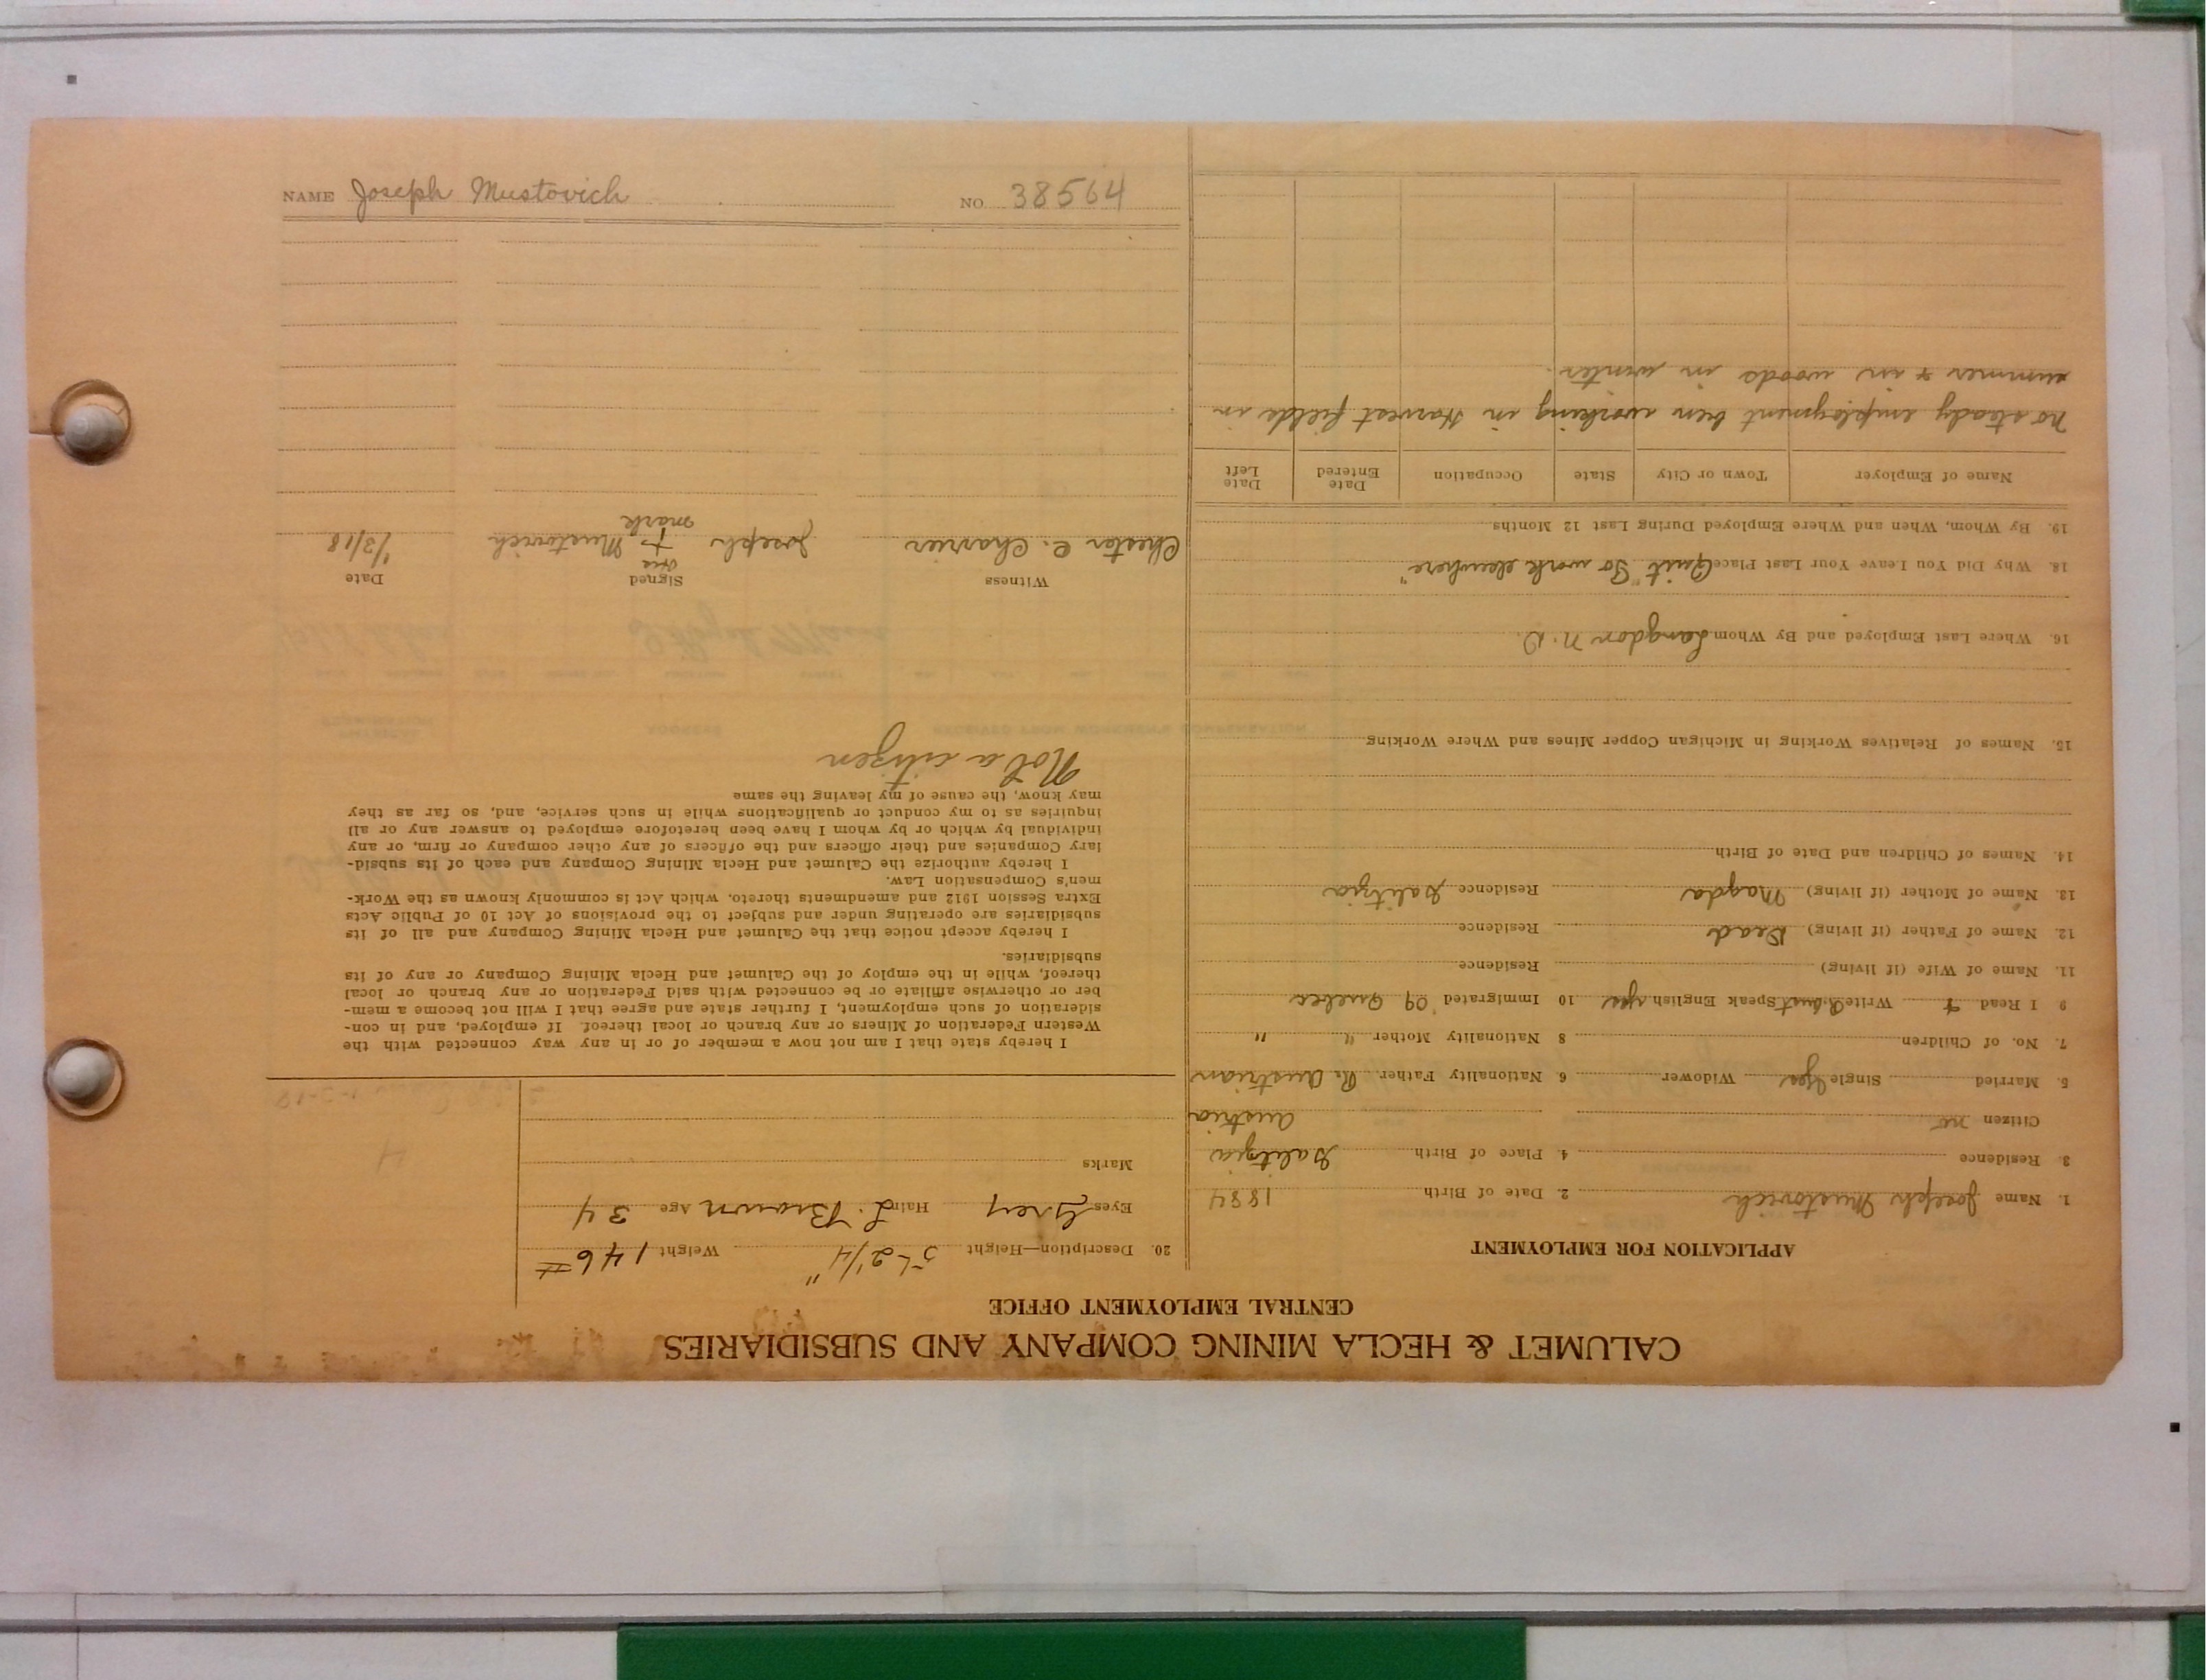 CALUMET & HECLA MINING COMPANY AND SUBSIDIARIES
CENTRAL EMPLOYMENT OFFICE
APPLICATION FOR EMPLOYMENT
1. Name Joseph Mustovich 2. Date of Birth 1884
3. Residence 4. Place of Birth Galitzia
Citizen no Austria
5. Married Single Yes Widower 6 Nationality Father R. Austrian
7. No. of Children 8 Nationality Mother " "
9 I Read & Write R. Aust Speak English yes 10 Immigrated '09 Quebec
11. Name of Wife (if living) Residence
12. Name of Father (if living) Dead Residence
13. Name of Mother (if living) Magda Residence Galitzia
14. Names of Children and Date of Birth
15. Names of Relatives Working in Michigan Copper Mines and Where Working
16. Where Last Employed and By Whom Langdon N.D.
18. Why Did You Leave Your Last Place Quit "To work elsewhere"
19. By Whom, When and Where Employed During Last 12 Months
Name of Employer Town or City State Occupation Date Entered Date Left
no steady employment ben working in Harvest fields in
summer & in woods in winter.
20. Description—Height 5-2 1/4" Weight 146 #
Eyes Grey Hair L. Brown Age 34
Marks
4
I hereby state that I am not now a member of or in any way connected with the
Western Federation of Miners or any branch or local thereof. If employed, and in con-
sideration of such employment, I further state and agree that I will not become a mem-
ber or otherwise affiliate or be connected with said Federation or any branch or local
thereof, while in the employ of the Calumet and Hecla Mining Company or any of its
subsidiaries.
I hereby accept notice that the Calumet and Hecla Mining Company and all of its
subsidiaries are operating under and subject to the provisions of Act 10 of Public Acts
Extra Session 1912 and amendments thereto, which Act is commonly known as the Work-
men's Compensation Law.
I hereby authorize the Calumet and Hecla Mining Company and each of its subsid-
iary Companies and their officers and the officers of any other company or firm, or any
individual by which or by whom I have been heretofore employed to answer any or all
inquiries as to my conduct or qualifications while in such service, and, so far as they
may know, the cause of my leaving the same
Not a citizen
Witness Signed Date
his
Chester C. Charrier Joseph + Mustovich 1/3/18
mark
NAME Joseph Mustovich NO. 38564